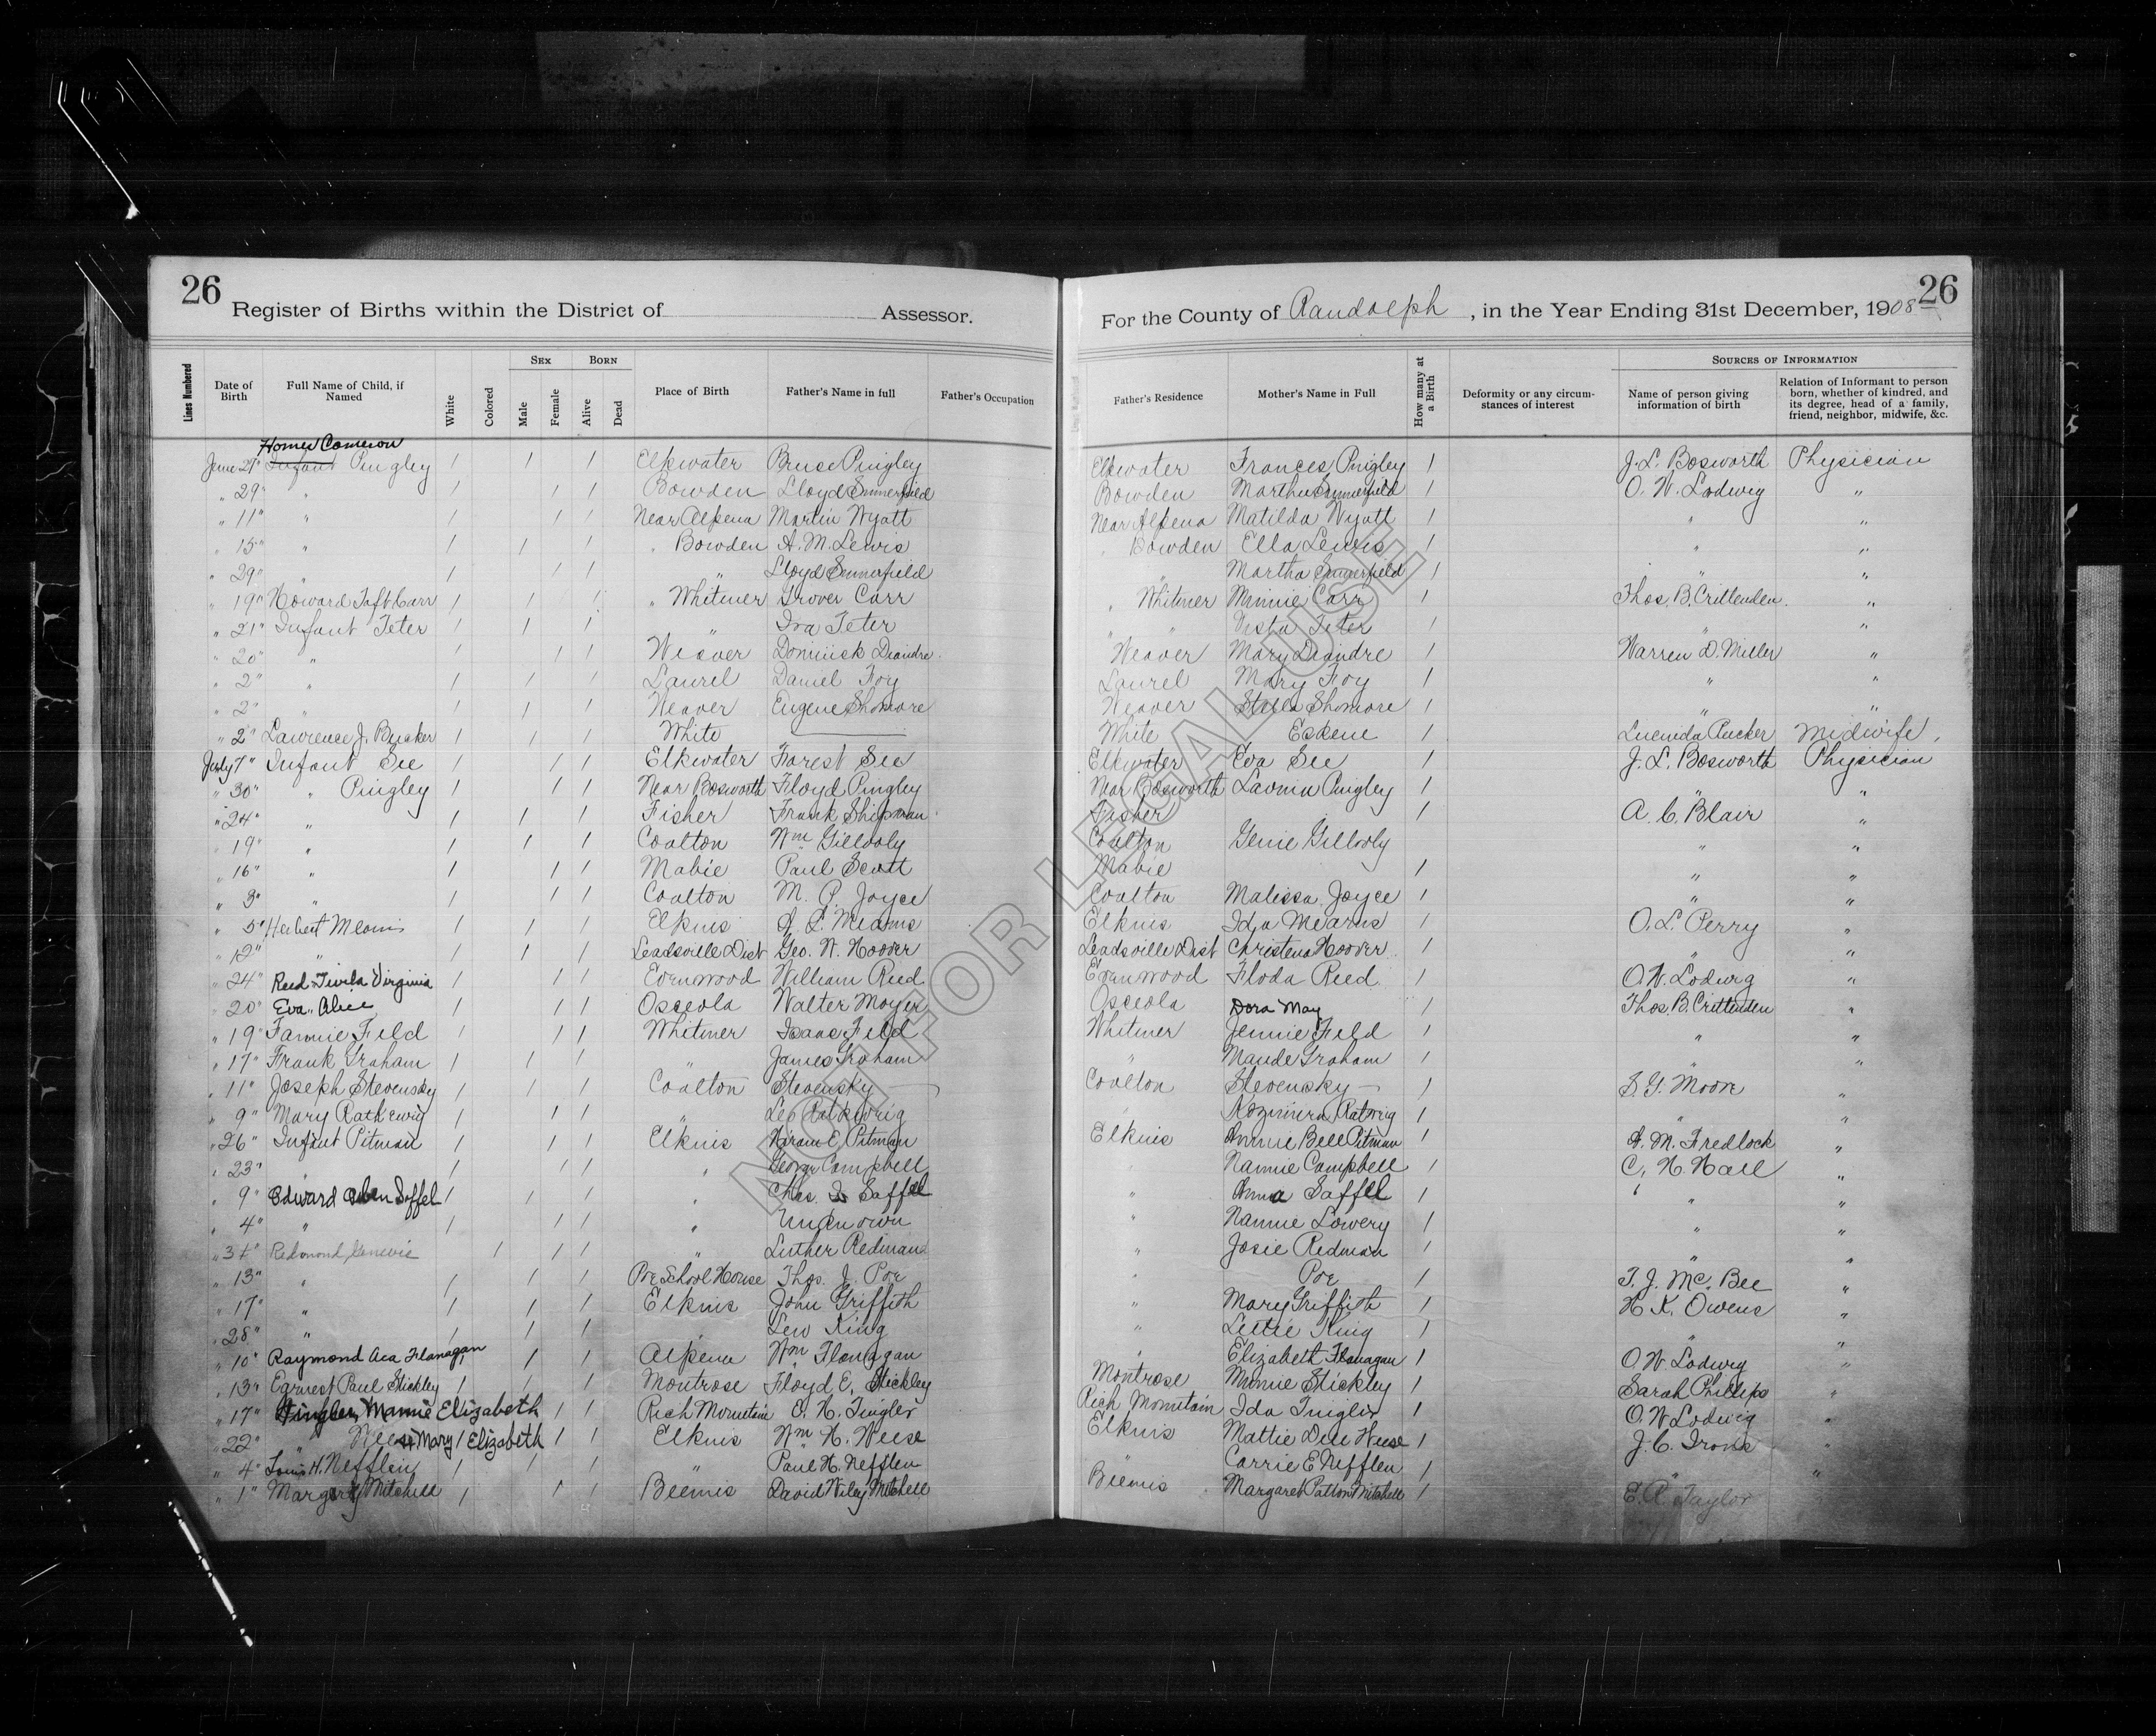 26
Register of Births within the District of Assessor.
For the County of Randolph, in the Year Ending 31st December, 1908
26
Lines Numbered
Date of Birth
Full Name of Child, if Named
White
Colored
Sex
Male
Female
Born
Alive
Dead
Place of Birth
Father's Name in full
Father's Occupation
Father's Residence
Mother's Name in Full
How many at a Birth
Deformity or any circumstances of interest
Sources of Information
Name of person giving information of birth
Relation of Informant to person born, whether of kindred, and its degree, head of a family, friend, neighbor, midwife, &c.
Homer Cameron
June 27" Infant Pingley / / / Elkwater Bruse Pingley Elkwater Frances Pingley / J. L. Bosworth Physician
" 29" " / / / Bowden Lloyd Summerfield Bowden Martha Summerfield / O. W. Lodwig "
" 11" " / / / Near Alpena Martin Wyatt Near Alpena Matilda Wyatt / " "
" 15" " / / / " Bowden A. M. Lewis " Bowden Ella Lewis / " "
" 29" " / / / " Lloyd Summerfield " Martha Summerfield / " "
" 19" Howard Taft Carr / / / " Whitmer Grover Carr " Whitmer Minnie Carr / Thos. B. Crittenden "
" 21" Infant Teter / / / " Ira Teter " " Vista Teter / " "
" 20" " / / / Weaver Dominick Diandre Weaver Mary Diandre / Warren D. Miller "
" 2" " / / / Laurel Daniel Foy Laurel Mary Foy / " "
" 2" " / / / Weaver Eugene Shomore Weaver Stella Shomore / " "
" 2" Lawrence J. / / / White White / Lucinda Pucker Midwife
July 7" Infant See / / / Elkwater Forest See Elkwater Eva See / J. L. Bosworth Physician
" 30" " Pingley / / / Near Bosworth Floyd Pingley Near Bosworth Pingley / " "
" 24" " / / / Fisher Frank Shipman Fisher / A. C. Blair "
" 19" " / / / Coalton Wm Gillooly Coalton Genie Gillooly " "
" 16" " / / / Mabie Paul Scott Mabie / " "
" 3" " / / / Coalton M. P. Joyce Coalton Malissa Joyce / " "
" 5" Herbert Mearns / / / Elkins Mearns Elkins Ida Mearns / O. L. Perry "
" 12" " / / / Leadsville Dist Geo. W. Hoover Leadsville Dist Christena Hoover / " "
" 24" Reed Twila Virginia / / / Evenwood William Reed Evenwood Floda Reed / O. W. Lodwig "
" 20" Eva Alice / / / Osceola Walter Moyer Osceola Dora May / Thos. B. Crittenden "
" 19" Fannie Feld / / / Whitmer Isaac Feld Whitmer Jennie Feld / " "
" 17" Frank Graham / / / " James Graham " Maude Graham / " "
" 11" Joseph Stevensky / / / Coalton Stevensky Coalton Stevensky / S. G. Moore "
" 9" Mary / / / " Leo " / " "
" 26" Infant Pitman / / / Elkins Hiram E. Pitman Elkins Annie Bell Pitman / A. M. Fredlock "
" 23" " / / / " George Campbell " Nannie Campbell / C. H. Hall "
" 9" Edward / / / " Chas. Saffel " Anna Saffel / " "
" 4" " / / / " Unknown " Nannie Lowery / " "
" 31" Redmond Genevie / / / " Luther Redman " Josie Redman / " "
" 13" " / / / Poe School House Thos. J. Poe " Poe / T. J. Mc. Bee "
" 17" " / / / Elkins John Griffith " Mary Griffith / H. K. Owens "
" 28" " / / / " Lew King " King / " "
" 10" Raymond Aca Flanagan / / / Alpena Wm Flanagan " Elizabeth Flanagan / O. W. Lodwig "
" 13" Earnest Paul Stickley / / / Montrose Floyd E. Stickley Montrose Minnie Stickley / Sarah Phillips "
" 17" Tingler, Mamie Elizabeth / / Rich Mountain O. H. Tingler Rich Mountain Ida Tingler / O. W. Lodwig "
" 22" " Weese Mary Elizabeth / / / Elkins Wm H. Weese Elkins Mattie Dell Weese / J. C. Irons "
" 4" Louis H. Nefflen / / / " Paul H. Nefflen Carrie E Nefflen / " "
" 1" Margary Mitchell / / / Beemis David Wiley Mitchell Beemis Margaret Patton Mitchell / E. R. Taylor
NOT FOR LEGAL USE